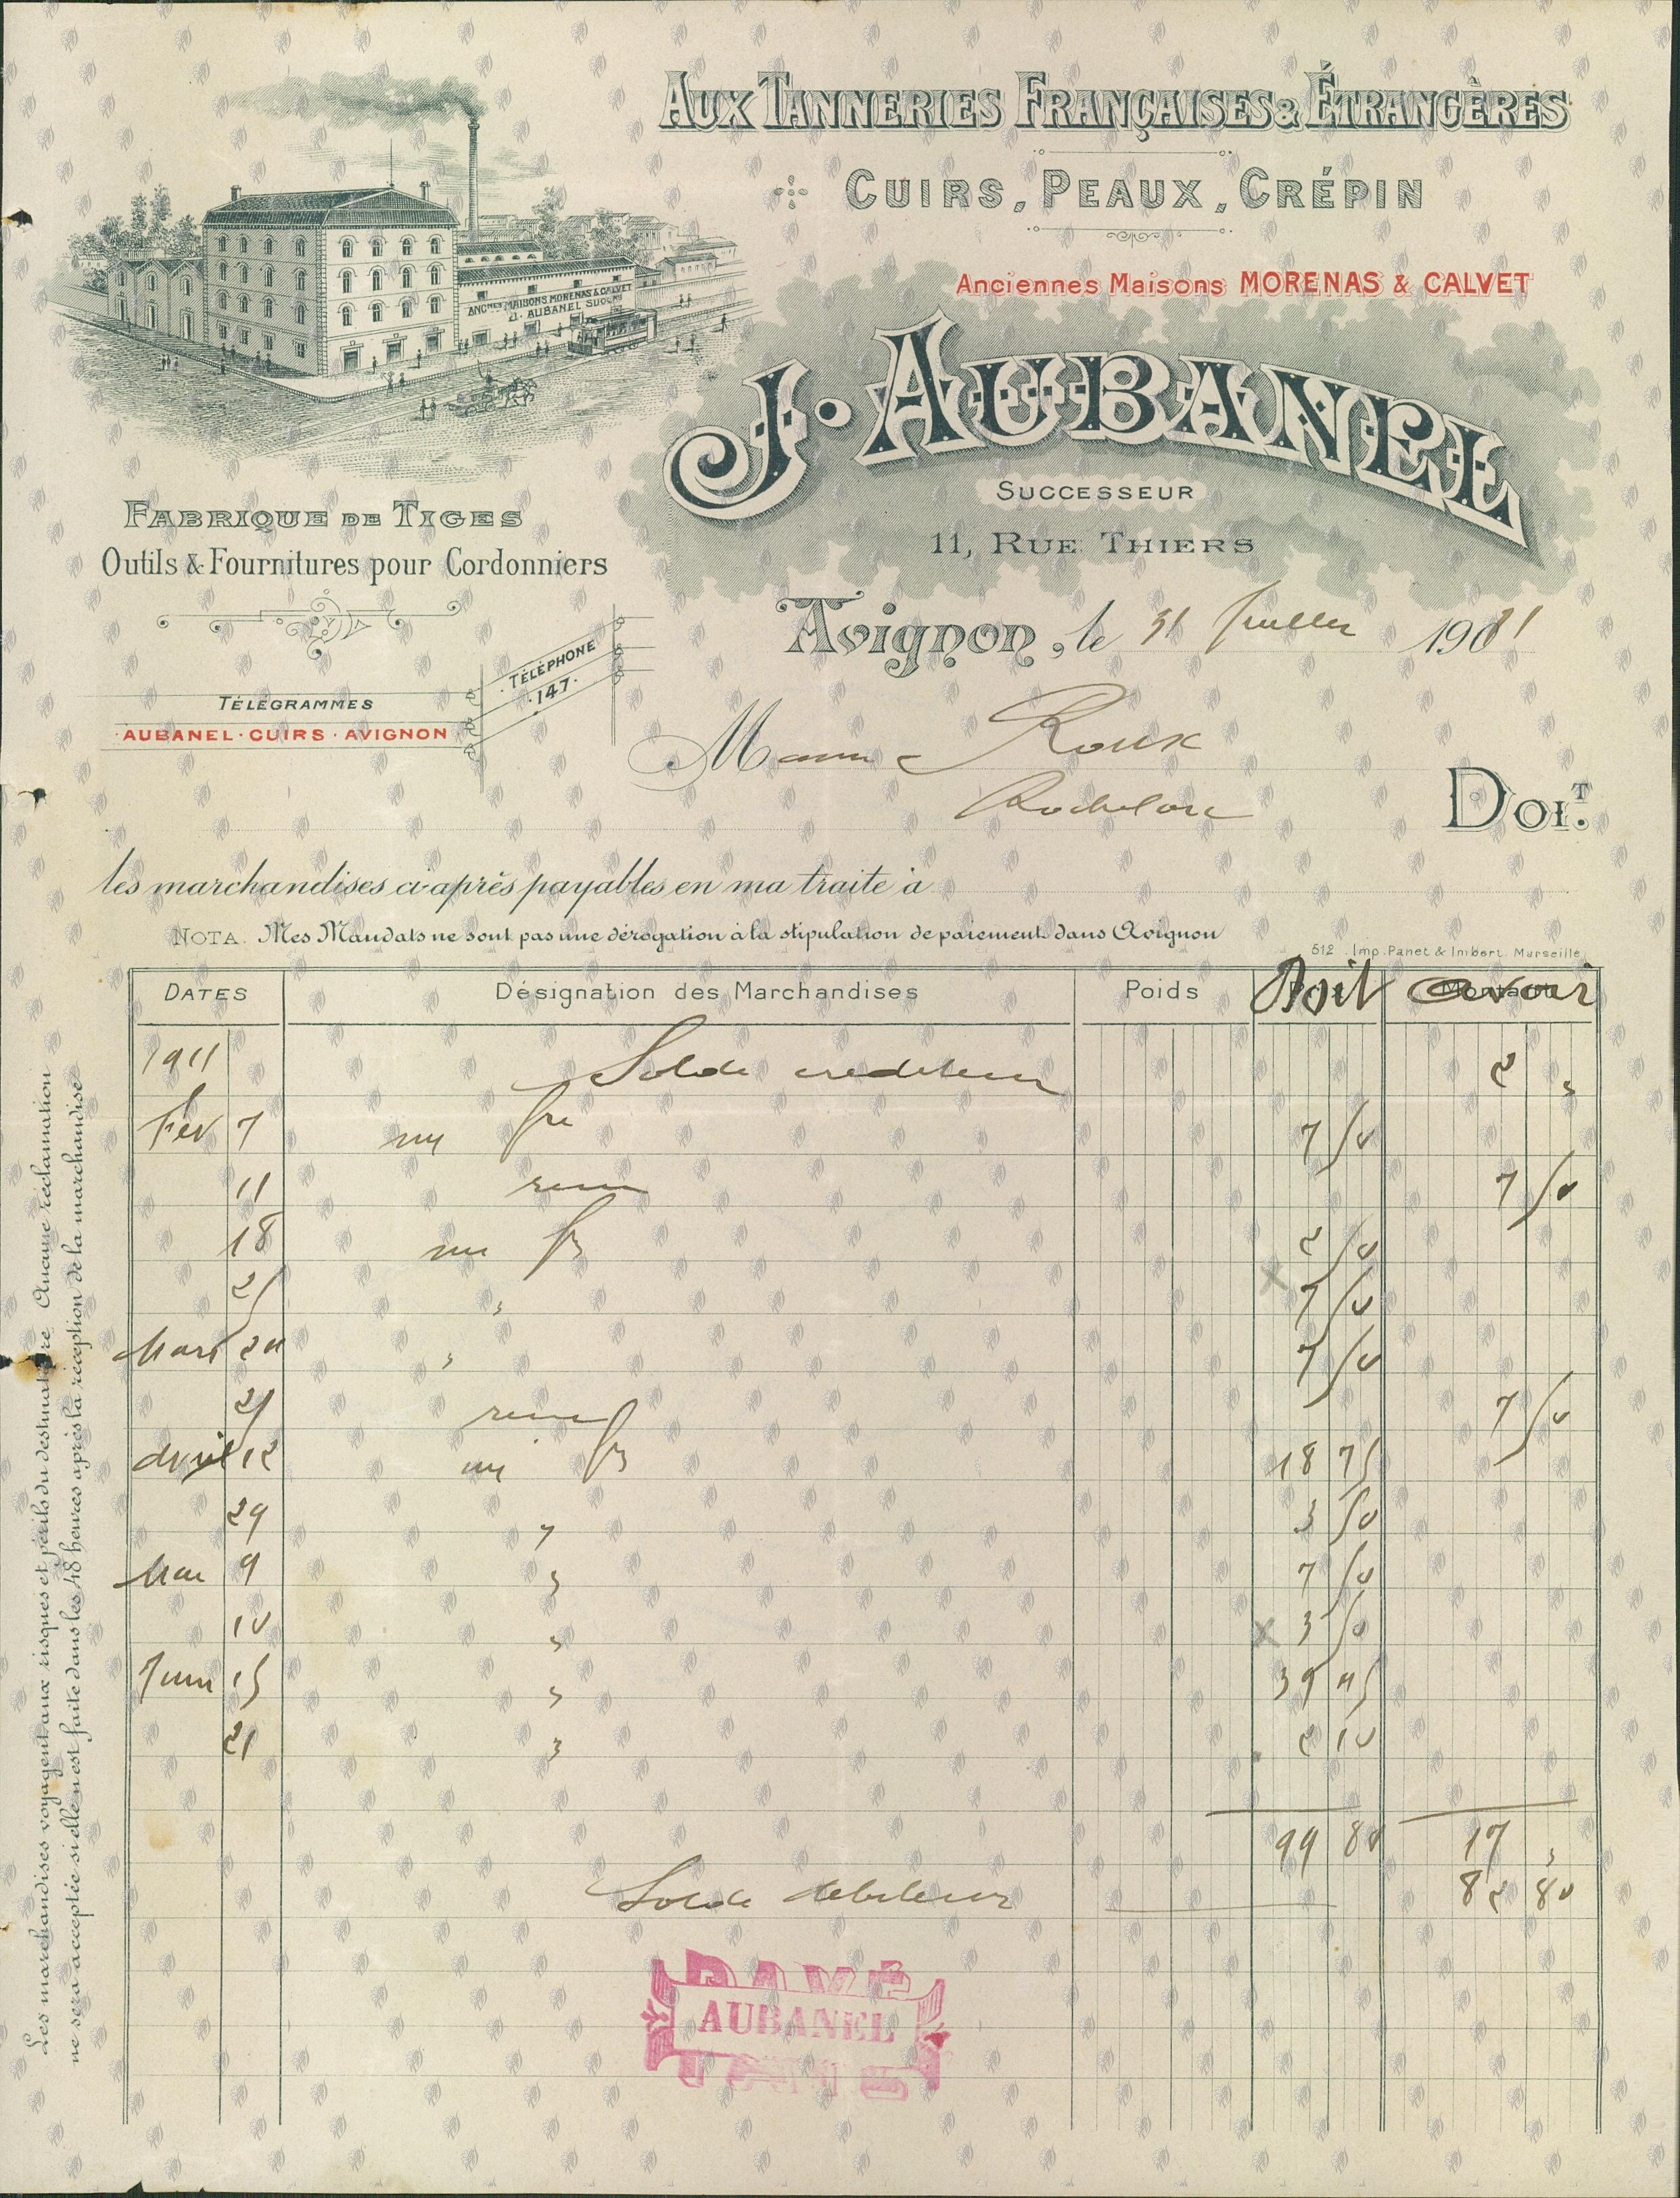 AUX TANNERIES FRANÇAISES & ÉTRANGÈRES
CUIRS, PEAUX, CRÉPIN
Anciennes Maisons MORENAS & CALVET
ANCNES MAISONS MORENAS & CALVET
J. AUBANEL SUCCR
J. AUBANEL
SUCCESSEUR
11, RUE THIERS
FABRIQUE DE TIGES
Outils & Fournitures pour Cordonniers
TÉLÉPHONE
147
TÉLÉGRAMMES
AUBANEL · CUIRS · AVIGNON
Avignon, le 31 Juillet 1911
M Roux
DOIT
les marchandises ci-après payables en ma traite à
NOTA. Mes Mandats ne sont pas une dérogation à la stipulation de paiement dans Avignon
512 Imp. Panet & Imbert. Marseille
DATES Désignation des Marchandises Poids Doit Avoir
1911 Solde crediteur 2 "
Fév 7 7 50
11 7 50
18 2 50
25 " 7 50
Mars 20 " 7 50
25 7 50
Avril 12 18 75
29 " 3 50
Mai 9 " 7 50
10 " 3 50
Juin 15 " 39 45
21 " 2 10
99 80 17 "
Solde debiteur 82 80
PAYÉ
AUBANEL
Les marchandises voyagent aux risques et périls du destinataire. Aucune réclamation
ne sera acceptée si elle n'est faite dans les 48 heures après la réception de la marchandise